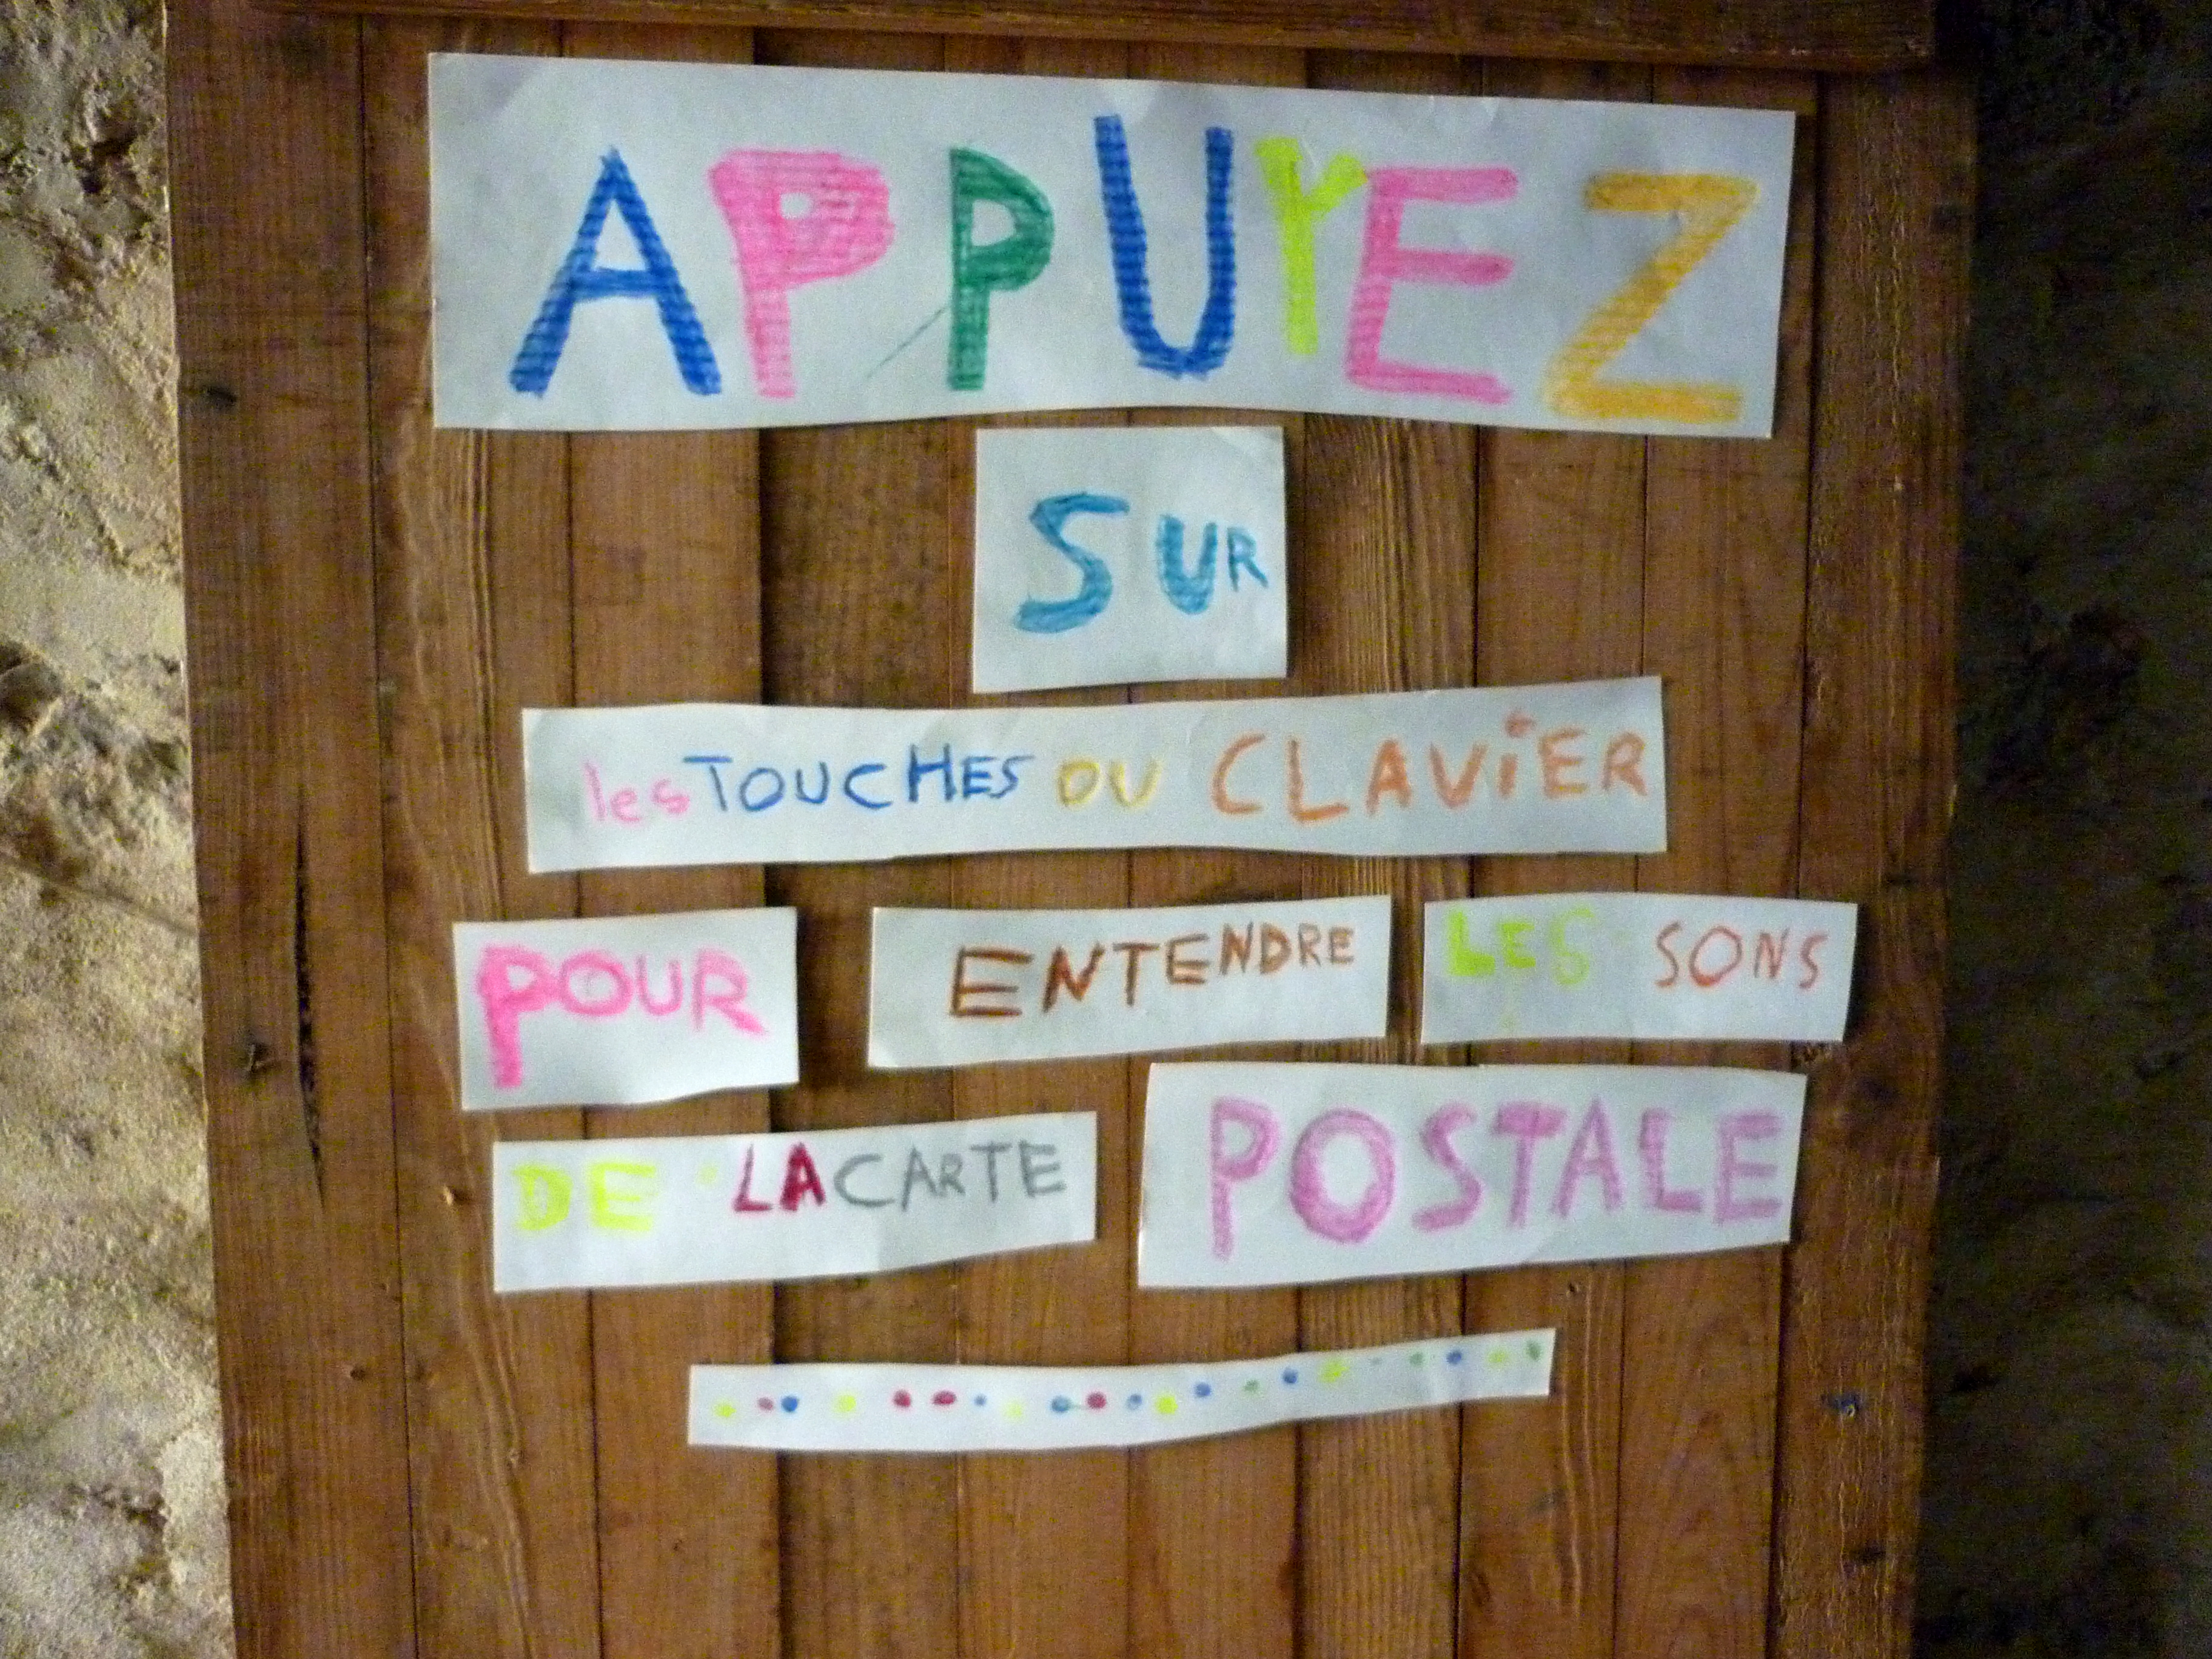 APPUYEZ
SUR
les TOUCHES DU CLAViER
POUR ENTENDRE LES SONS
DE LA CARTE POSTALE